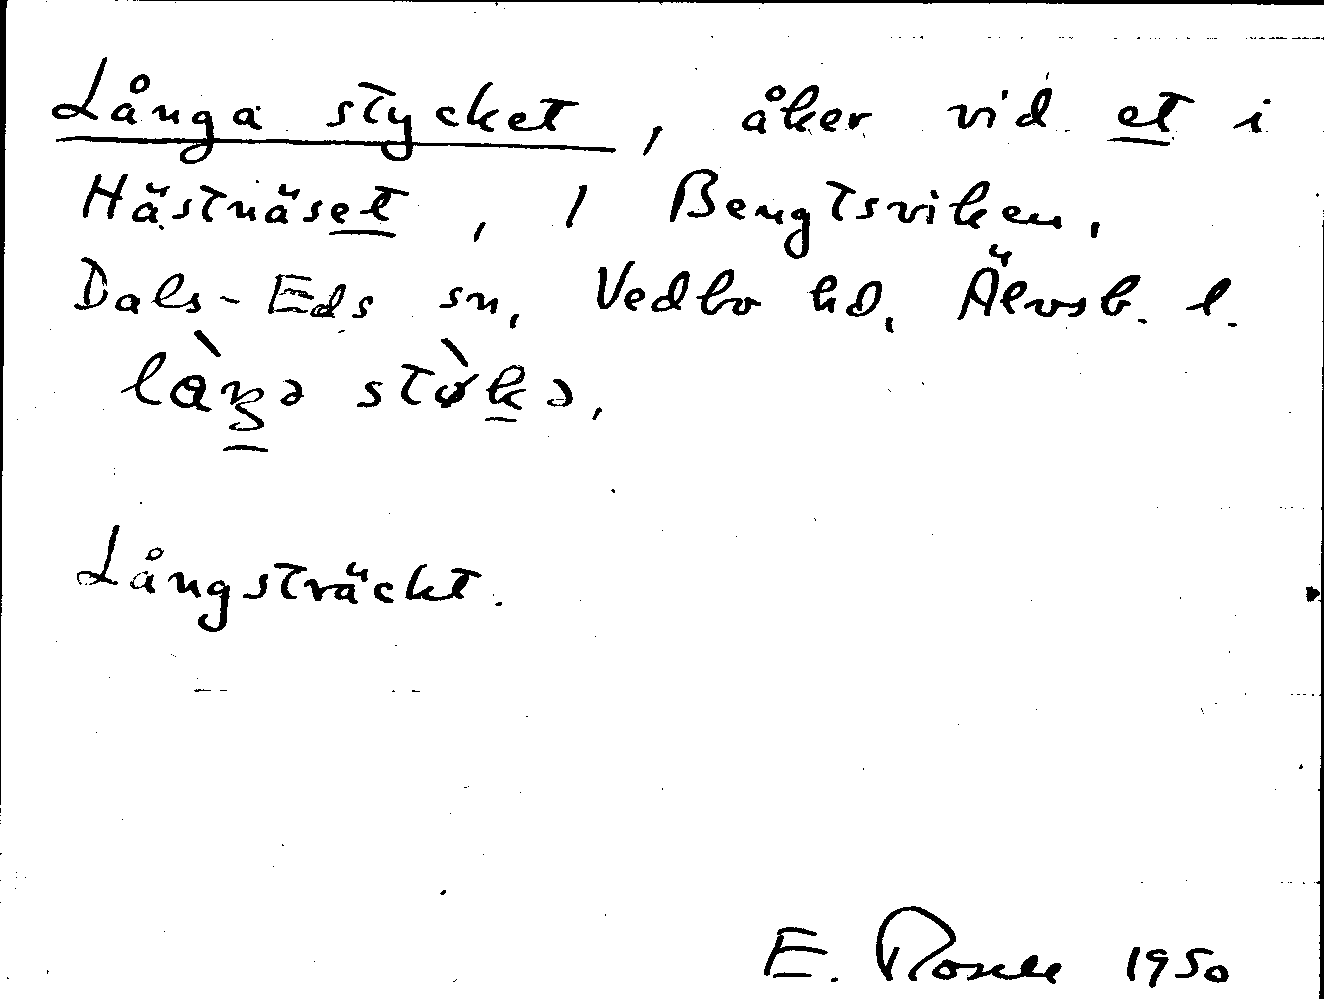 Långa stycket, åker vid et i
Hästnäset, 1 Bengtsviken,
Dals-Eds sn, Vedbo hd, Älvsb. l.
Långsträckt.
E. 1950